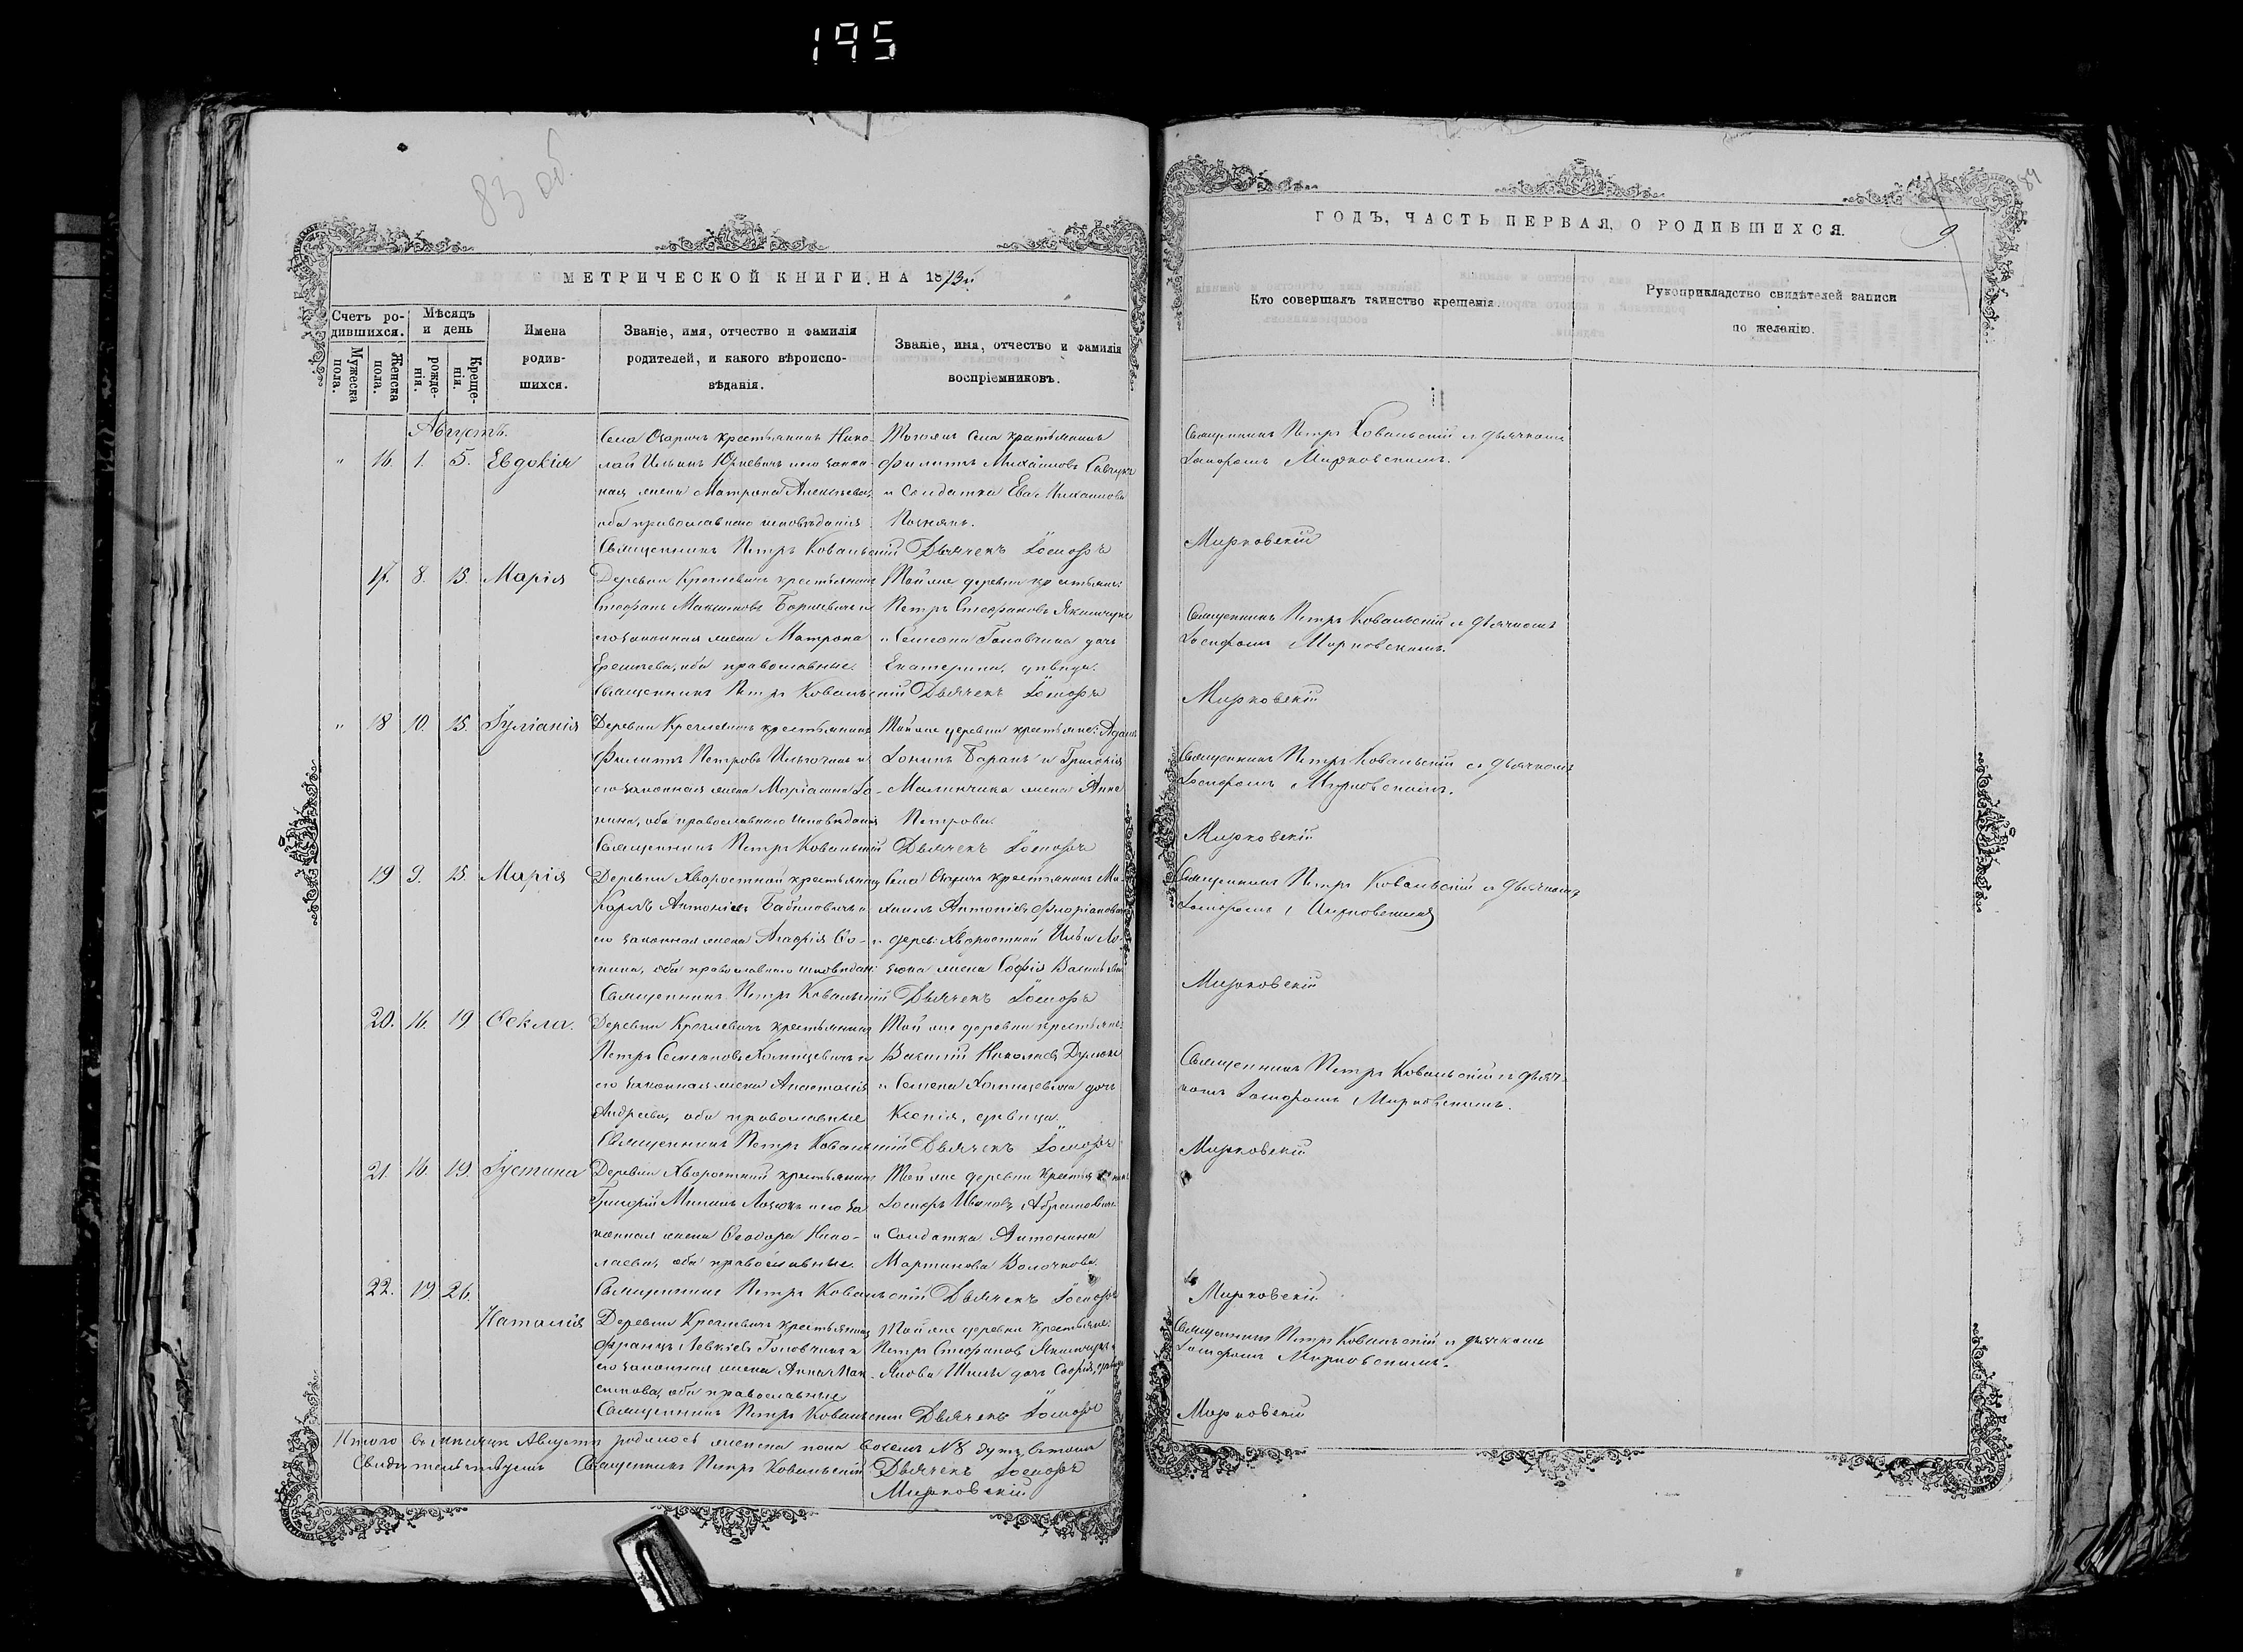 195
83 об.
МЕТРИЧЕСКОЙ КНИГИ, НА 1873й
Счетъ ро-
дившихся.
Мужеска
пола.
Женска
пола.
Мѣсяцъ
и день
рожде-
нія.
Креще-
нія.
Имена
родив-
шихся.
Званіе, имя, отчество и фамилія
родителей, и какого вѣроиспо-
вѣданія.
Званіе, имя, отчество и фамилія
воспріемниковъ.
Августъ.
" 16. 1. 5. Евдокія
Села Озаричъ крестьянинъ Нико-
лай Ильинъ Юхневичъ и его закон-
ная жена Матрона Алексѣева,
оба православнаго исповѣданія
Тогожъ села крестьянинъ
Филиппъ Михайловъ Савчукъ
и солдатка Ева Михайлова
Священникъ Петръ Ковальскій Дьячекъ Іосифъ
17. 8. 15. Марія
Деревни крестьянинъ
Стефанъ Максимовъ и
его законная жена Матрона
оба православные.
Той же деревни крестьян:
Петръ Стефановъ
и Семена Головчица дочь
Екатерина, дѣвица.
Священникъ Петръ Ковальскій Дьячекъ Іосифъ
" 18 10. 15. Іуліанія
Деревни крестьянинъ
Филиппъ Петровъ и
его законная жена Маріанна Іо-
нина, оба православнаго исповѣданія
Той же деревни крестьяне: Адамъ
Іонинъ Баранъ и Григорія
жена Анна
Петрова.
Священникъ Петръ Ковальскій Дьячекъ Іосифъ
19 9. 15. Марія
Деревни Хворостной крестьянинъ
Карпъ Антоніевъ Бабиловичъ и
его законная жена Агафія Ѳо-
мина, оба православнаго исповѣдан:
Села Озаричъ крестьянинъ Ми-
хаилъ Антоніевъ
и дерев: Хворостной Ильи Ло-
зюка жена Софія Васильева
Священникъ Петръ Ковальскій Дьячекъ Іосифъ
20. 16. 19 Ѳекла.
Деревни крестьянинъ
Петръ Семеновъ Хомицевичъ и
его законная жена Анастасія
Андреева, оба православные
Той же деревни крестьян:
Василій Николаевъ
и Семена Хомицевича дочь
Ксенія, дѣвица.
Священникъ Петръ Ковальскій Дьячекъ Іосифъ
21. 16. 19. Іустина
Деревни Хворостной крестьянинъ
Григорій Лозюкъ и его за-
конная жена Ѳеодора Нико-
лаева, оба православные.
Той же деревни
Іосифъ Ивановъ Абрамовичъ
и солдатка Антонина
Мартинова
Священникъ Петръ Ковальскій Дьячекъ Іосифъ
22. 19 26. Наталія
Деревни крестьянинъ
Францъ Головчицъ и
его законная жена Анна Мак-
симова, оба православные
Той же деревни крестьяне:
Петръ Стефановъ
дочь Софія, дѣвица
Священникъ Петръ Ковальскій Дьячекъ Іосифъ
Итого въ мѣсяцѣ Августѣ родилось женска пола
Свидѣтельствуемъ Священникъ Петръ Ковальскій Дьячекъ Іосифъ
Мирковскій
84
ГОДЪ, ЧАСТЬ ПЕРВАЯ, О РОДИВШИХСЯ.
9
Кто совершалъ таинство крещенія.
Рукоприкладство свидѣтелей записи
по желанію.
Священникъ Петръ Ковальскій съ дьячкомъ
Іосифомъ Мирковскимъ.
Мирковскій
Священникъ Петръ Ковальскій съ дьячкомъ
Іосифомъ Мирковскимъ.
Мирковскій
Священникъ Петръ Ковальскій съ дьячкомъ
Іосифомъ Мирковскимъ.
Мирковскій
Священникъ Петръ Ковальскій съ дьячкомъ
Іосифомъ Мирковскимъ
Мирковскій
Священникъ Петръ Ковальскій съ дьяч-
комъ Іосифомъ Мирковскимъ.
Мирковскій
Мирковскій
Священникъ Петръ Ковальскій съ дьячкомъ
Іосифомъ Мирковскимъ.
Мирковскій